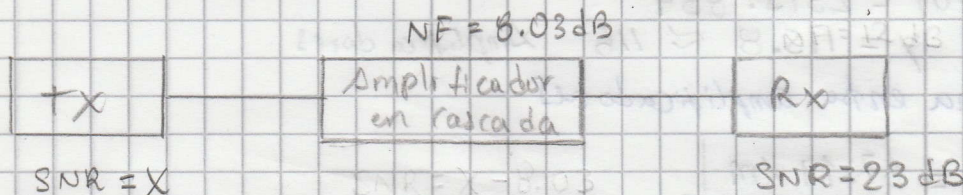 NF = 8.03 dB
Tx
Amplificador
en cascada
Rx
SNR = X
SNR = 23 dB